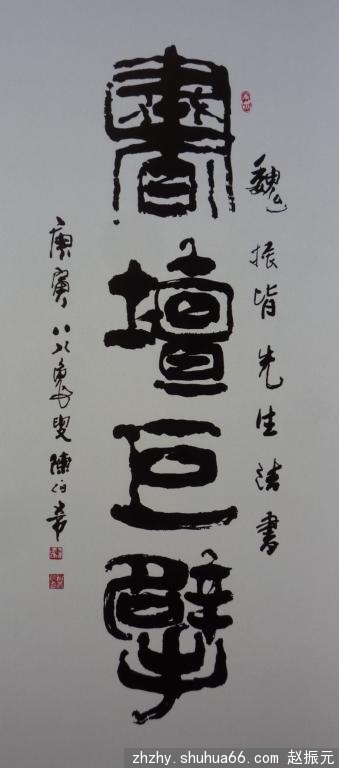 魏振皆先生法書
書壇巨擘
庚寅八八叟陳伯希
zhzhy.shuhua66.com 赵振元